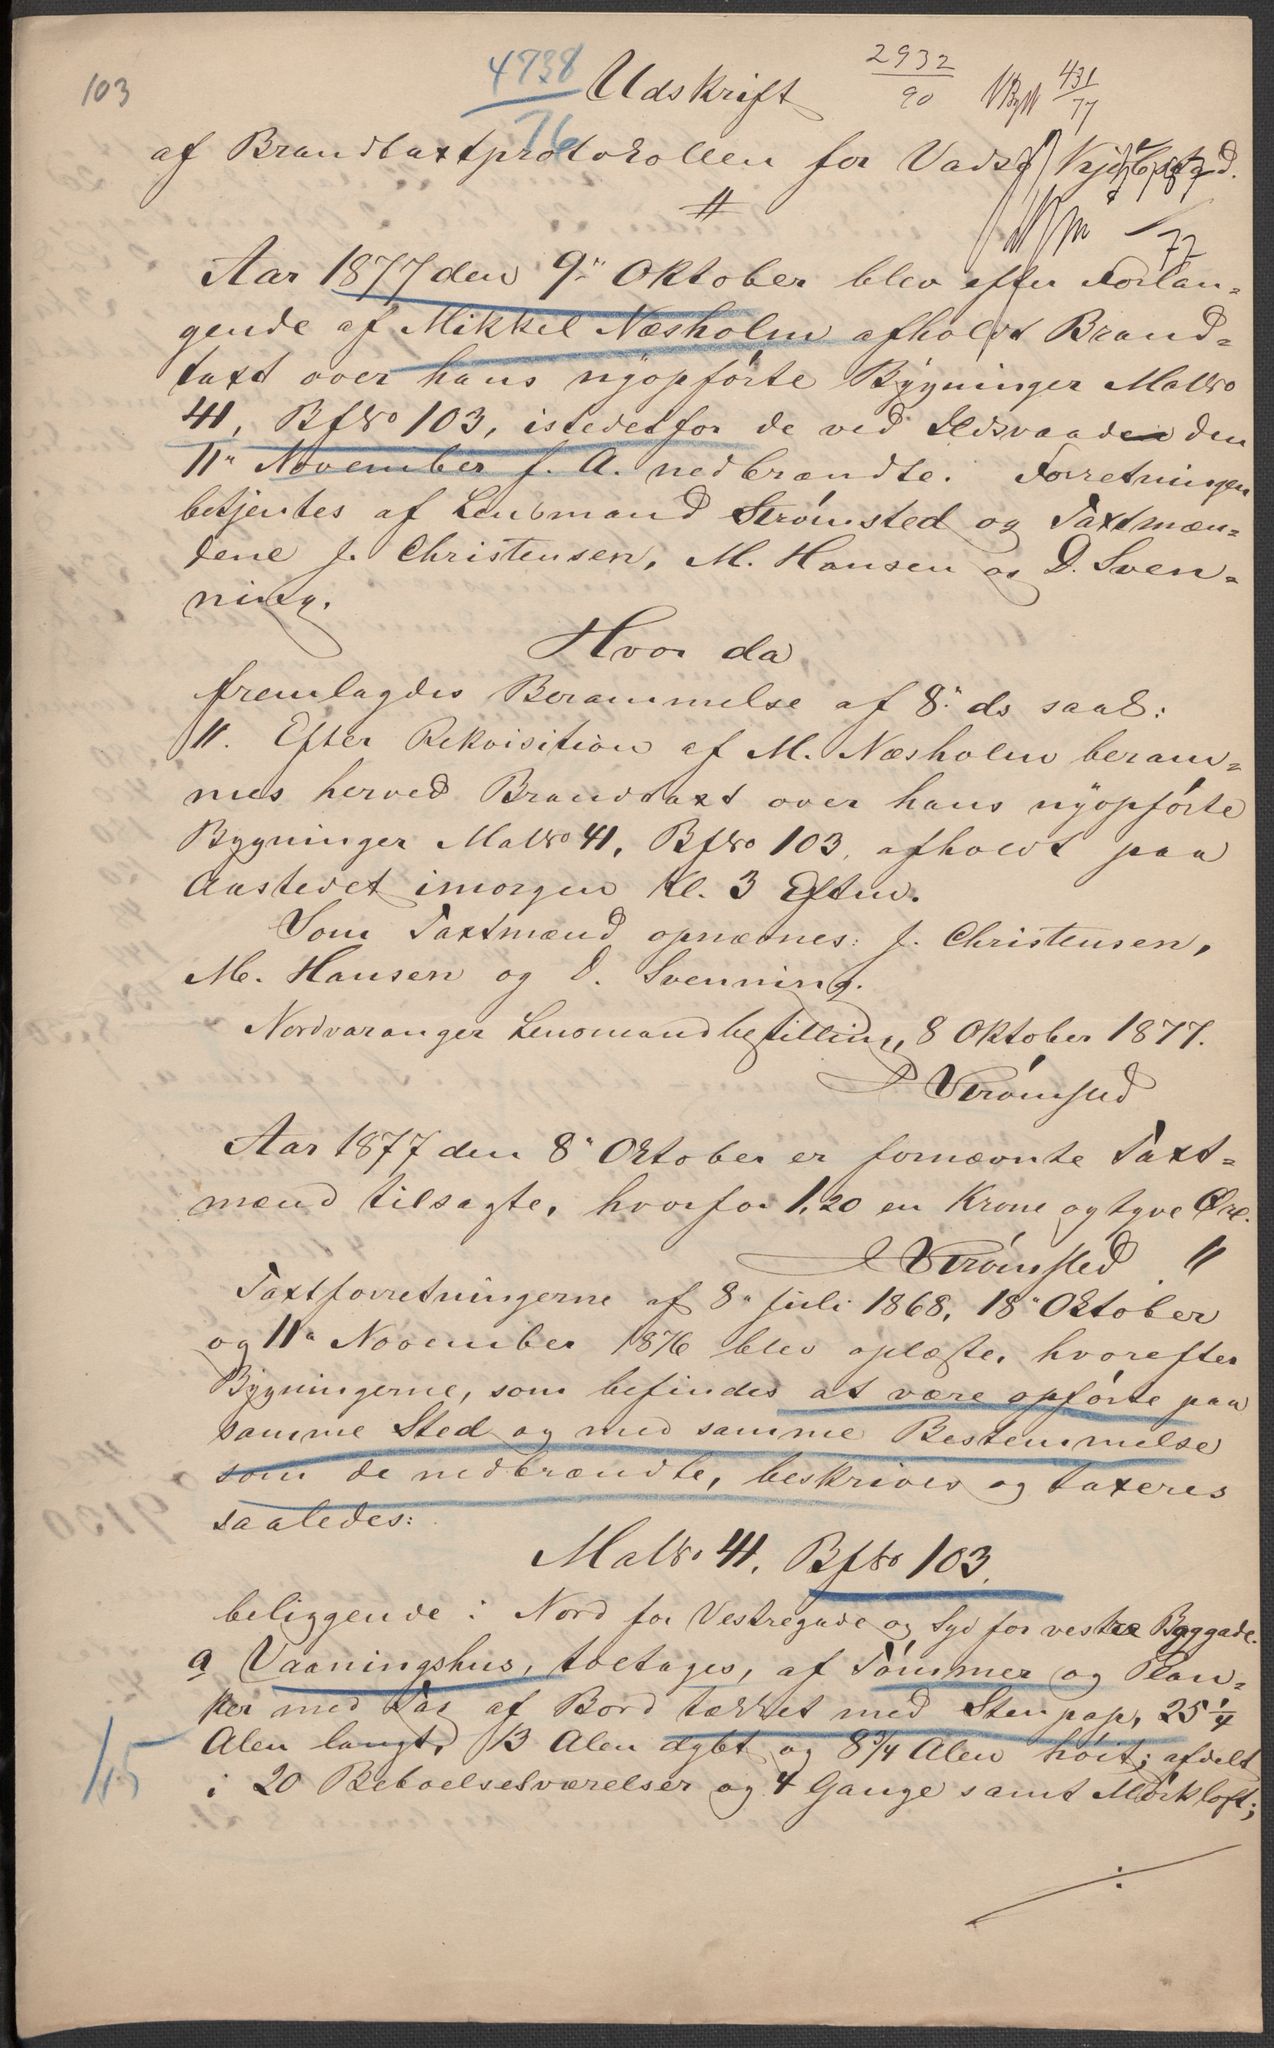 103
4738
76
2932
90
431
77
Udskrift
af Brandtaxtprotokollen for Vadsø Kjøbstad.
77
Aar 1877 den 9" Oktober blev efter Forlan-
gende af Mikkel Næsholm afholdt Brand-
taxt over hans nyopførte Bygninger Mat№
41, Bf№ 103, istedetfor de ved Ildsvaaden den
11" November f. A. nedbrændte. Forretningen
betjentes af Lensmand Strømsted og Taxtmæn-
dene J. Christensen, M. Hansen og D. Sven-
ning.
Hvor da
fremlagdes Berammelse af 8" ds saal:
". Efter Rekvisition af M. Næsholm beram-
mes herved Brandtaxt over hans nyopførte
Bygninger Mat№ 41, Bf№ 103, afholdt paa
Aastedet imorgen Kl. 3 Eftm.
Som Taxtmænd opnævnes: J. Christensen,
M. Hansen og D. Svenning.
Nordvaranger Lensmandbestilling, 8 Oktober 1877.
Strømsted
Aar 1877 den 8" Oktober er fornævnte Taxt-
mænd tilsagte, hvorfor 1,20 en Krone og tyve Øre.
Strømsted "
Taxtforretningerne af 8" Juli 1868, 18" Oktober
og 11" November 1876 blev oplæste, hvorefter
Bygningerne, som befindes at være opførte paa
samme Sted og med samme Bestemmelse
som de nedbrændte, beskrives og taxeres
saaledes:
Mat№ 41, Bf№ 103.
beliggende i Nord for Vestregade og Syd for vestre Byggade.
a Vaaningshus, toetages, af Tømmer og Plan-
ker med Tag af Bord tækket med Stenpap, 25 1/4
Alen langt, 13 Alen dybt og 8 3/4 Alen høit; afdelt
i 20 Beboelsesværelser og 4 Gange samt Mørkloft;
115
./.